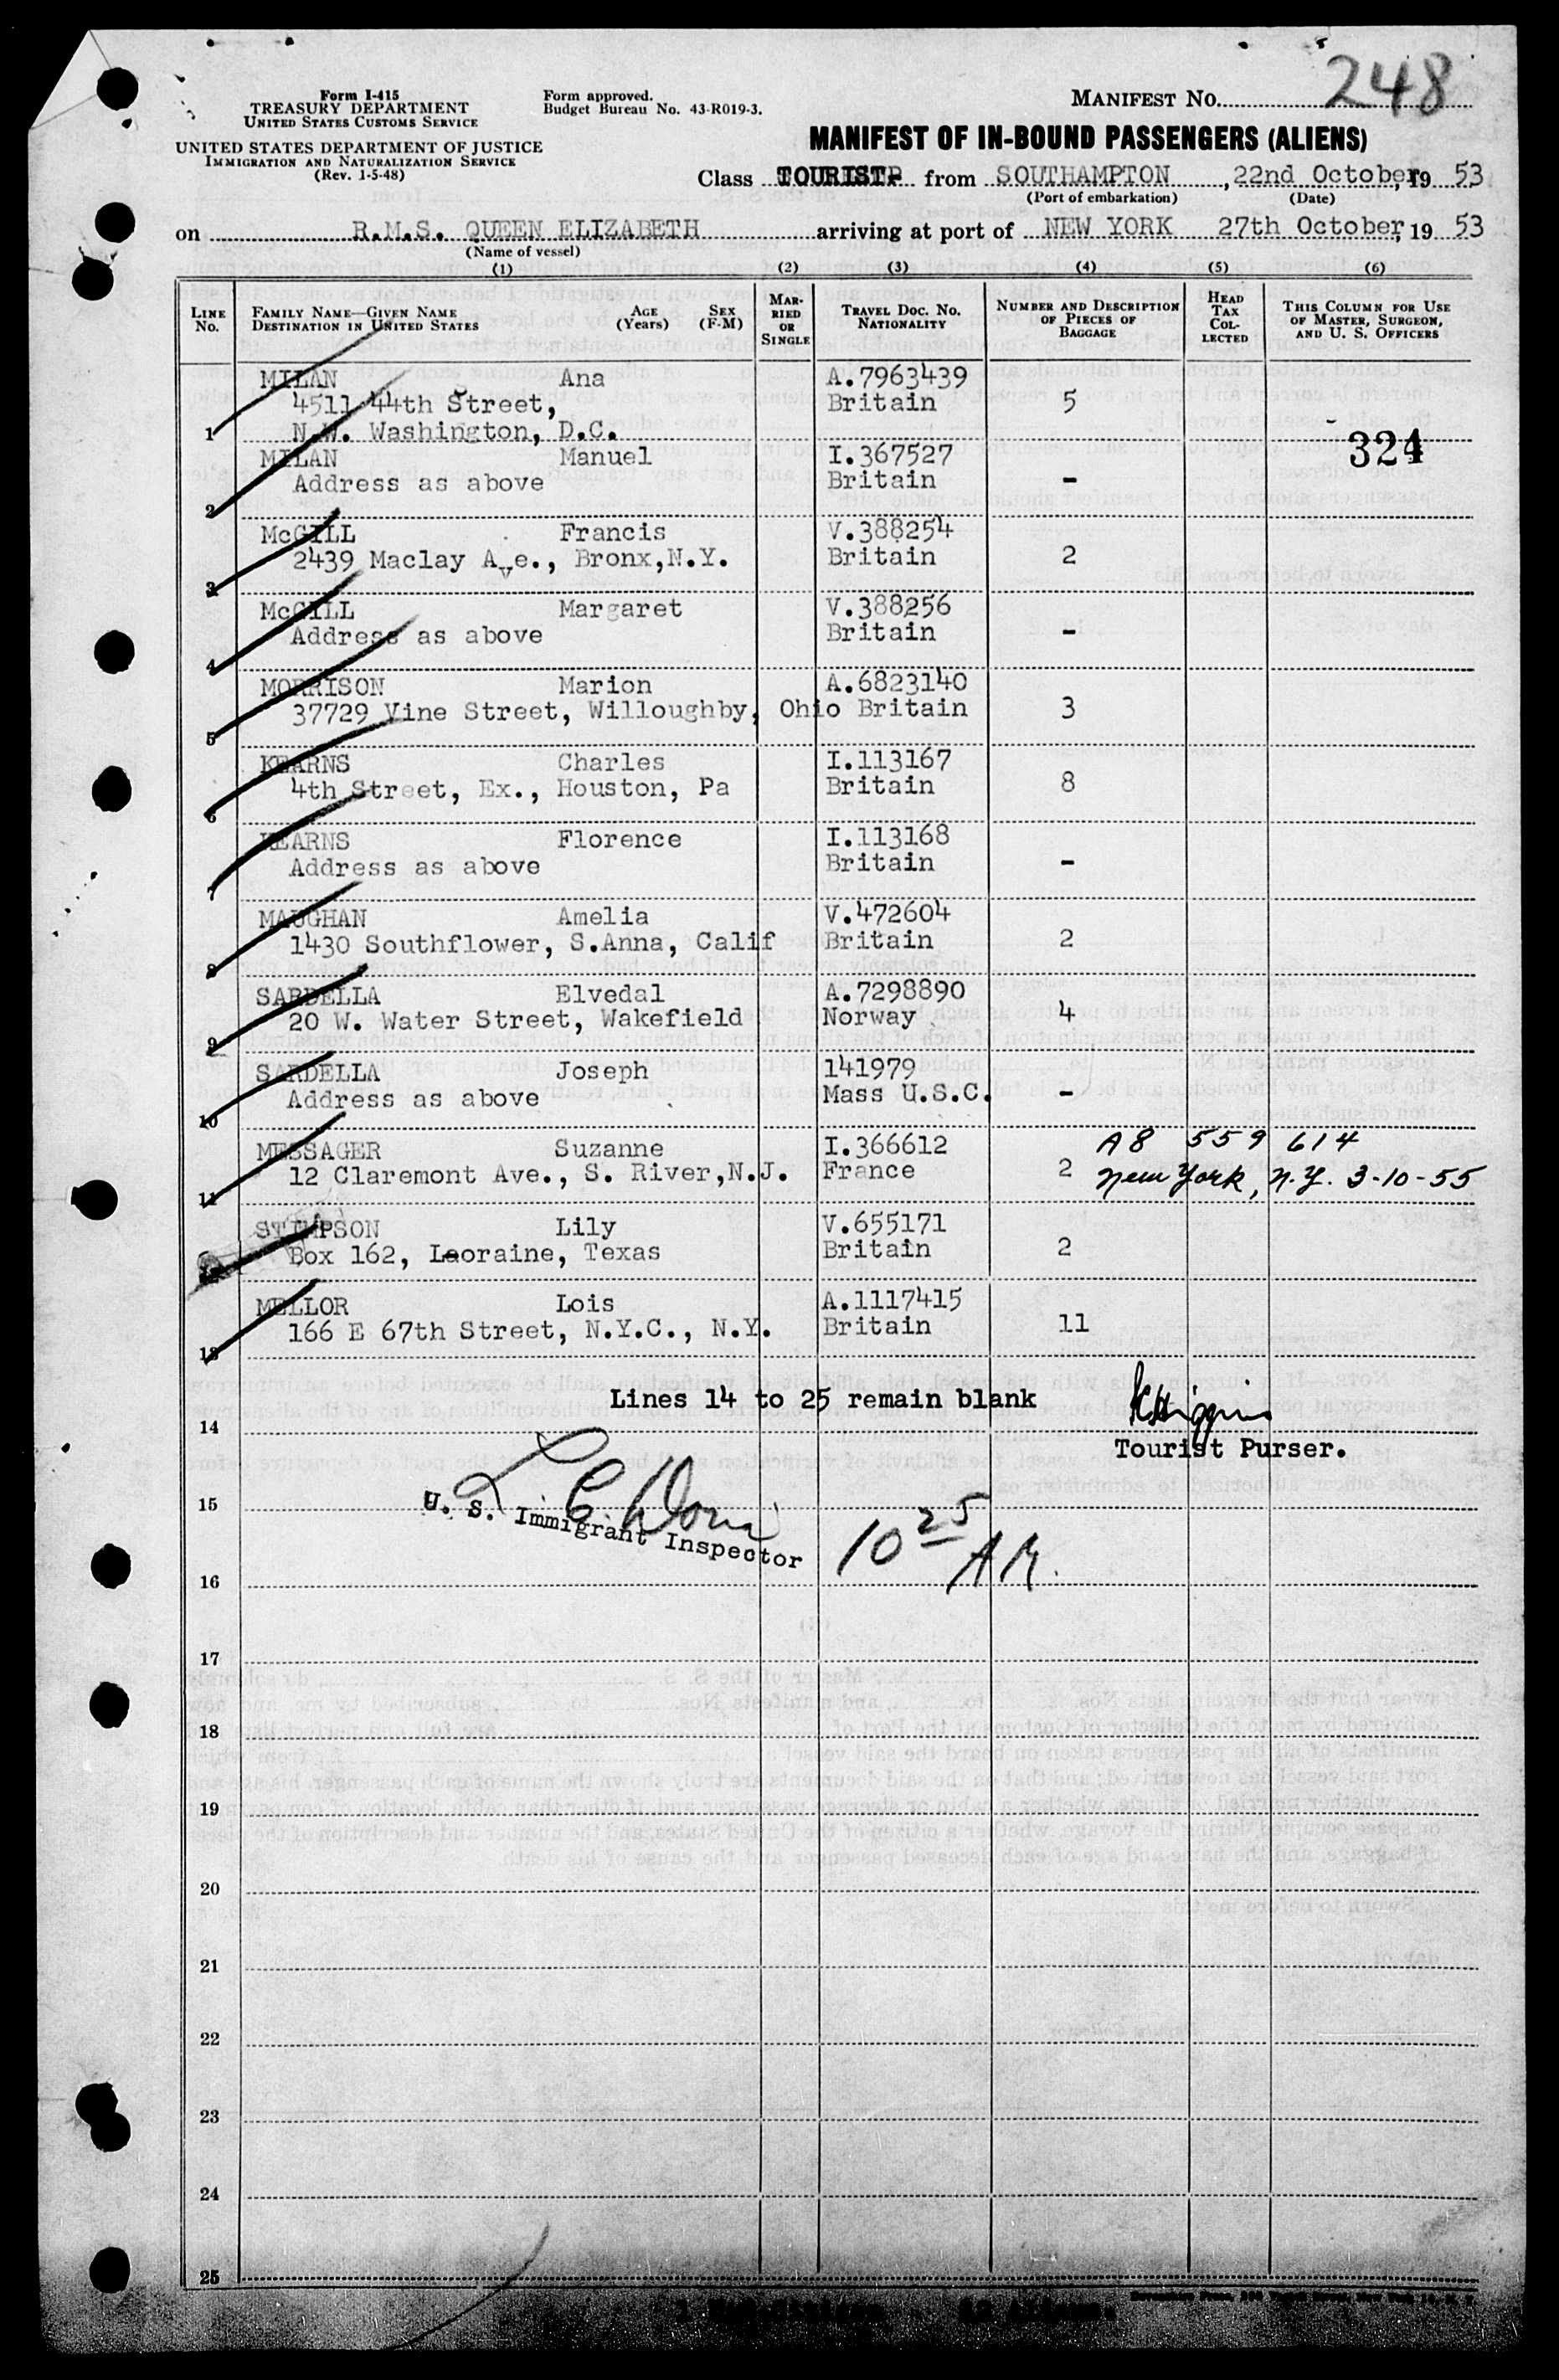 248
Form I-415
TREASURY DEPARTMENT
UNITED STATES CUSTOMS SERVICE
UNITED STATES DEPARTMENT OF JUSTICE
IMMIGRATION AND NATURALIZATION SERVICE
(Rev. 1-5-48)
Form approved.
Budget Bureau No. 43-R019-3.
MANIFEST NO.
MANIFEST OF IN-BOUND PASSENGERS (ALIENS)
Class TOURIST. from SOUTHAMPTON, 22nd October, 19 53
(Port of embarkation) (Date)
on R.M.S. QUEEN ELIZABETH arriving at port of NEW YORK 27th October, 19 53
(Name of vessel)
(1) (2) (3) (4) (5) (6)
LINE No.
FAMILY NAME—GIVEN NAME
DESTINATION IN UNITED STATES
AGE (Years)
SEX (F-M)
MARRIED OR SINGLE
TRAVEL DOC. NO.
NATIONALITY
NUMBER AND DESCRIPTION OF PIECES OF BAGGAGE
HEAD TAX COLLECTED
THIS COLUMN FOR USE OF MASTER, SURGEON, AND U. S. OFFICERS
MILAN Ana A.7963439
4511 44th Street, Britain 5
1 N.W. Washington, D.C.
324
MILAN Manuel I.367527
Address as above Britain -
2
McGILL Francis V.388254
2439 Maclay Ave., Bronx,N.Y. Britain 2
3
McGILL Margaret V.388256
Address as above Britain -
4
MORRISON Marion A.6823140
37729 Vine Street, Willoughby, Ohio Britain 3
5
KEARNS Charles I.113167
4th Street, Ex., Houston, Pa Britain 8
6
KEARNS Florence I.113168
Address as above Britain -
7
MAUGHAN Amelia V.472604
1430 Southflower, S.Anna, Calif Britain 2
8
SARDELLA Elvedal A.7298890
20 W. Water Street, Wakefield Norway 4
9
SARDELLA Joseph 141979
Address as above Mass U.S.C. -
10
MESSAGER Suzanne I.366612 A8 559 614
12 Claremont Ave., S. River,N.J. France 2 New York, N.Y. 3-10-55
11
STIMPSON Lily V.655171
Box 162, Leoraine, Texas Britain 2
12
MELLOR Lois A.1117415
166 E 67th Street, N.Y.C., N.Y. Britain 11
13
Lines 14 to 25 remain blank
14
Tourist Purser.
15
U. S. Immigrant Inspector
10 25 AM.
16
17
18
19
20
21
22
23
24
25